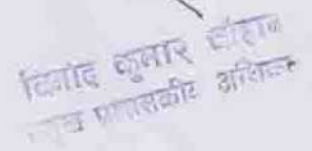 विनोद कुमार चौहान
प्रशासकीय अधिकारी